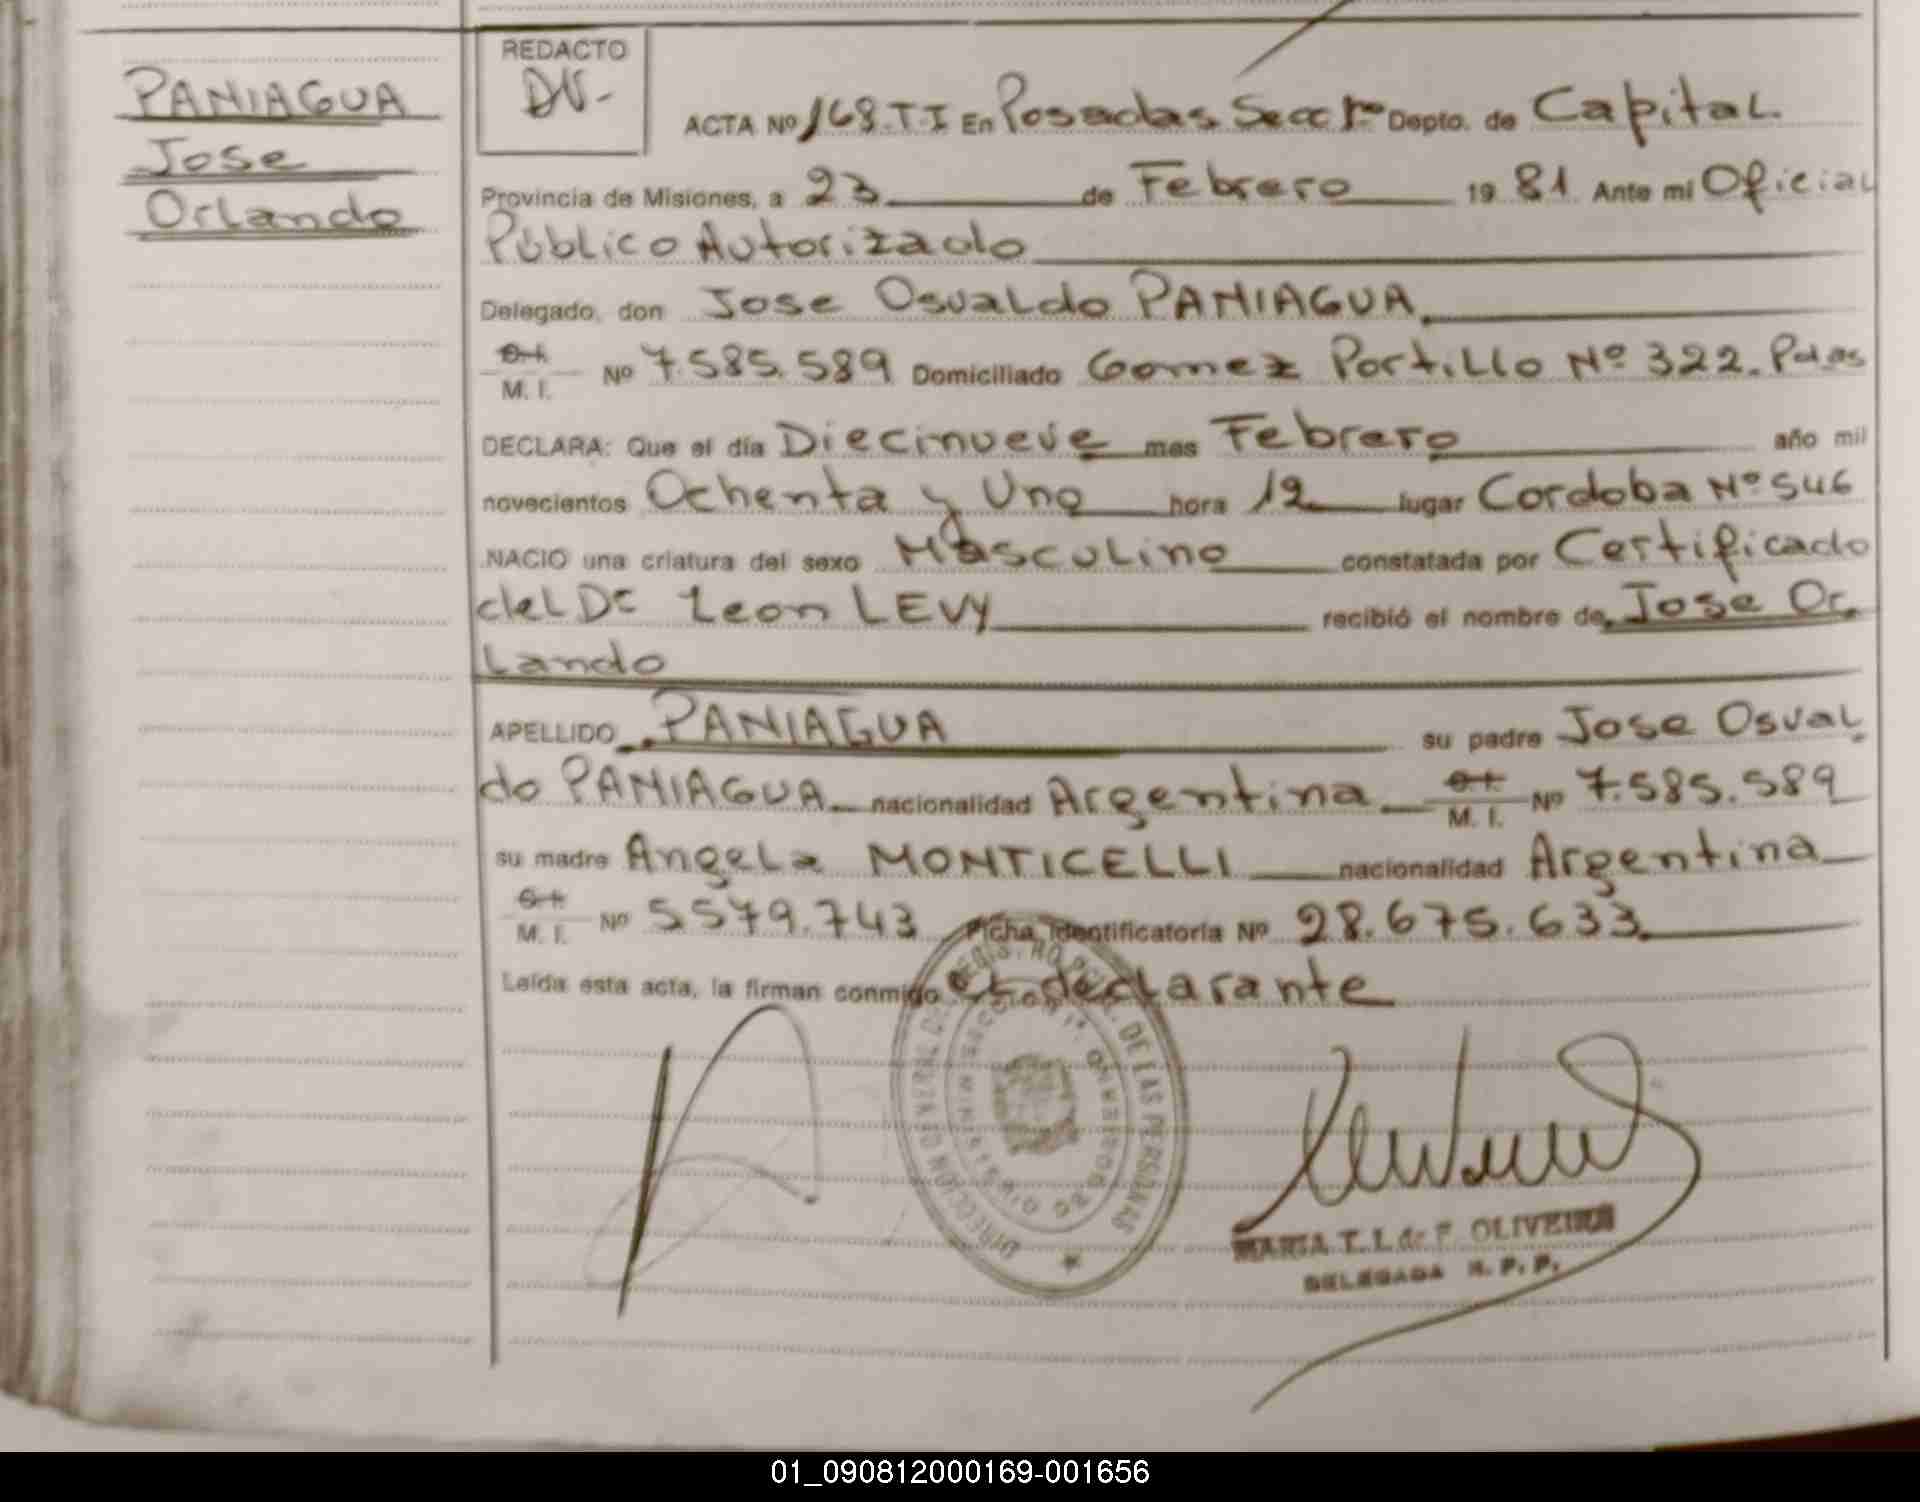 PANIAGUA
Jose
Orlando
REDACTO
DV-
ACTA Nº 168.T.I En Posadas Secc 1ª Depto. de Capital.
Provincia de Misiones, a 23 de Febrero 19 81 Ante mi Oficial
Público Autorizado
Delegado, don Jose Osvaldo PANIAGUA
M. I. Nº 7.585.589 Domiciliado Gomez Portillo Nº 322. Pdas
DECLARA: Que el día Diecinueve mes Febrero año mil
novecientos Ochenta y Uno hora 12 lugar Cordoba Nº 546
NACIO una criatura del sexo Masculino constatada por Certificado
del Dr Leon LEVY recibió el nombre de Jose Or
lando
APELLIDO PANIAGUA su padre Jose Osval
do PANIAGUA nacionalidad Argentina M. I. Nº 7.585.589
su madre Angela MONTICELLI nacionalidad Argentina
M. I. Nº 5579.743 Ficha Identificatoria Nº 28.675.633
Leída esta acta, la firman conmigo el declarante
DIRECCION GENERAL DEL REGISTRO PCIAL. DE LAS PERSONAS
MARIA T. I. de F. OLIVEIRA
DELEGADA R. P. P.
01_090812000169-001656